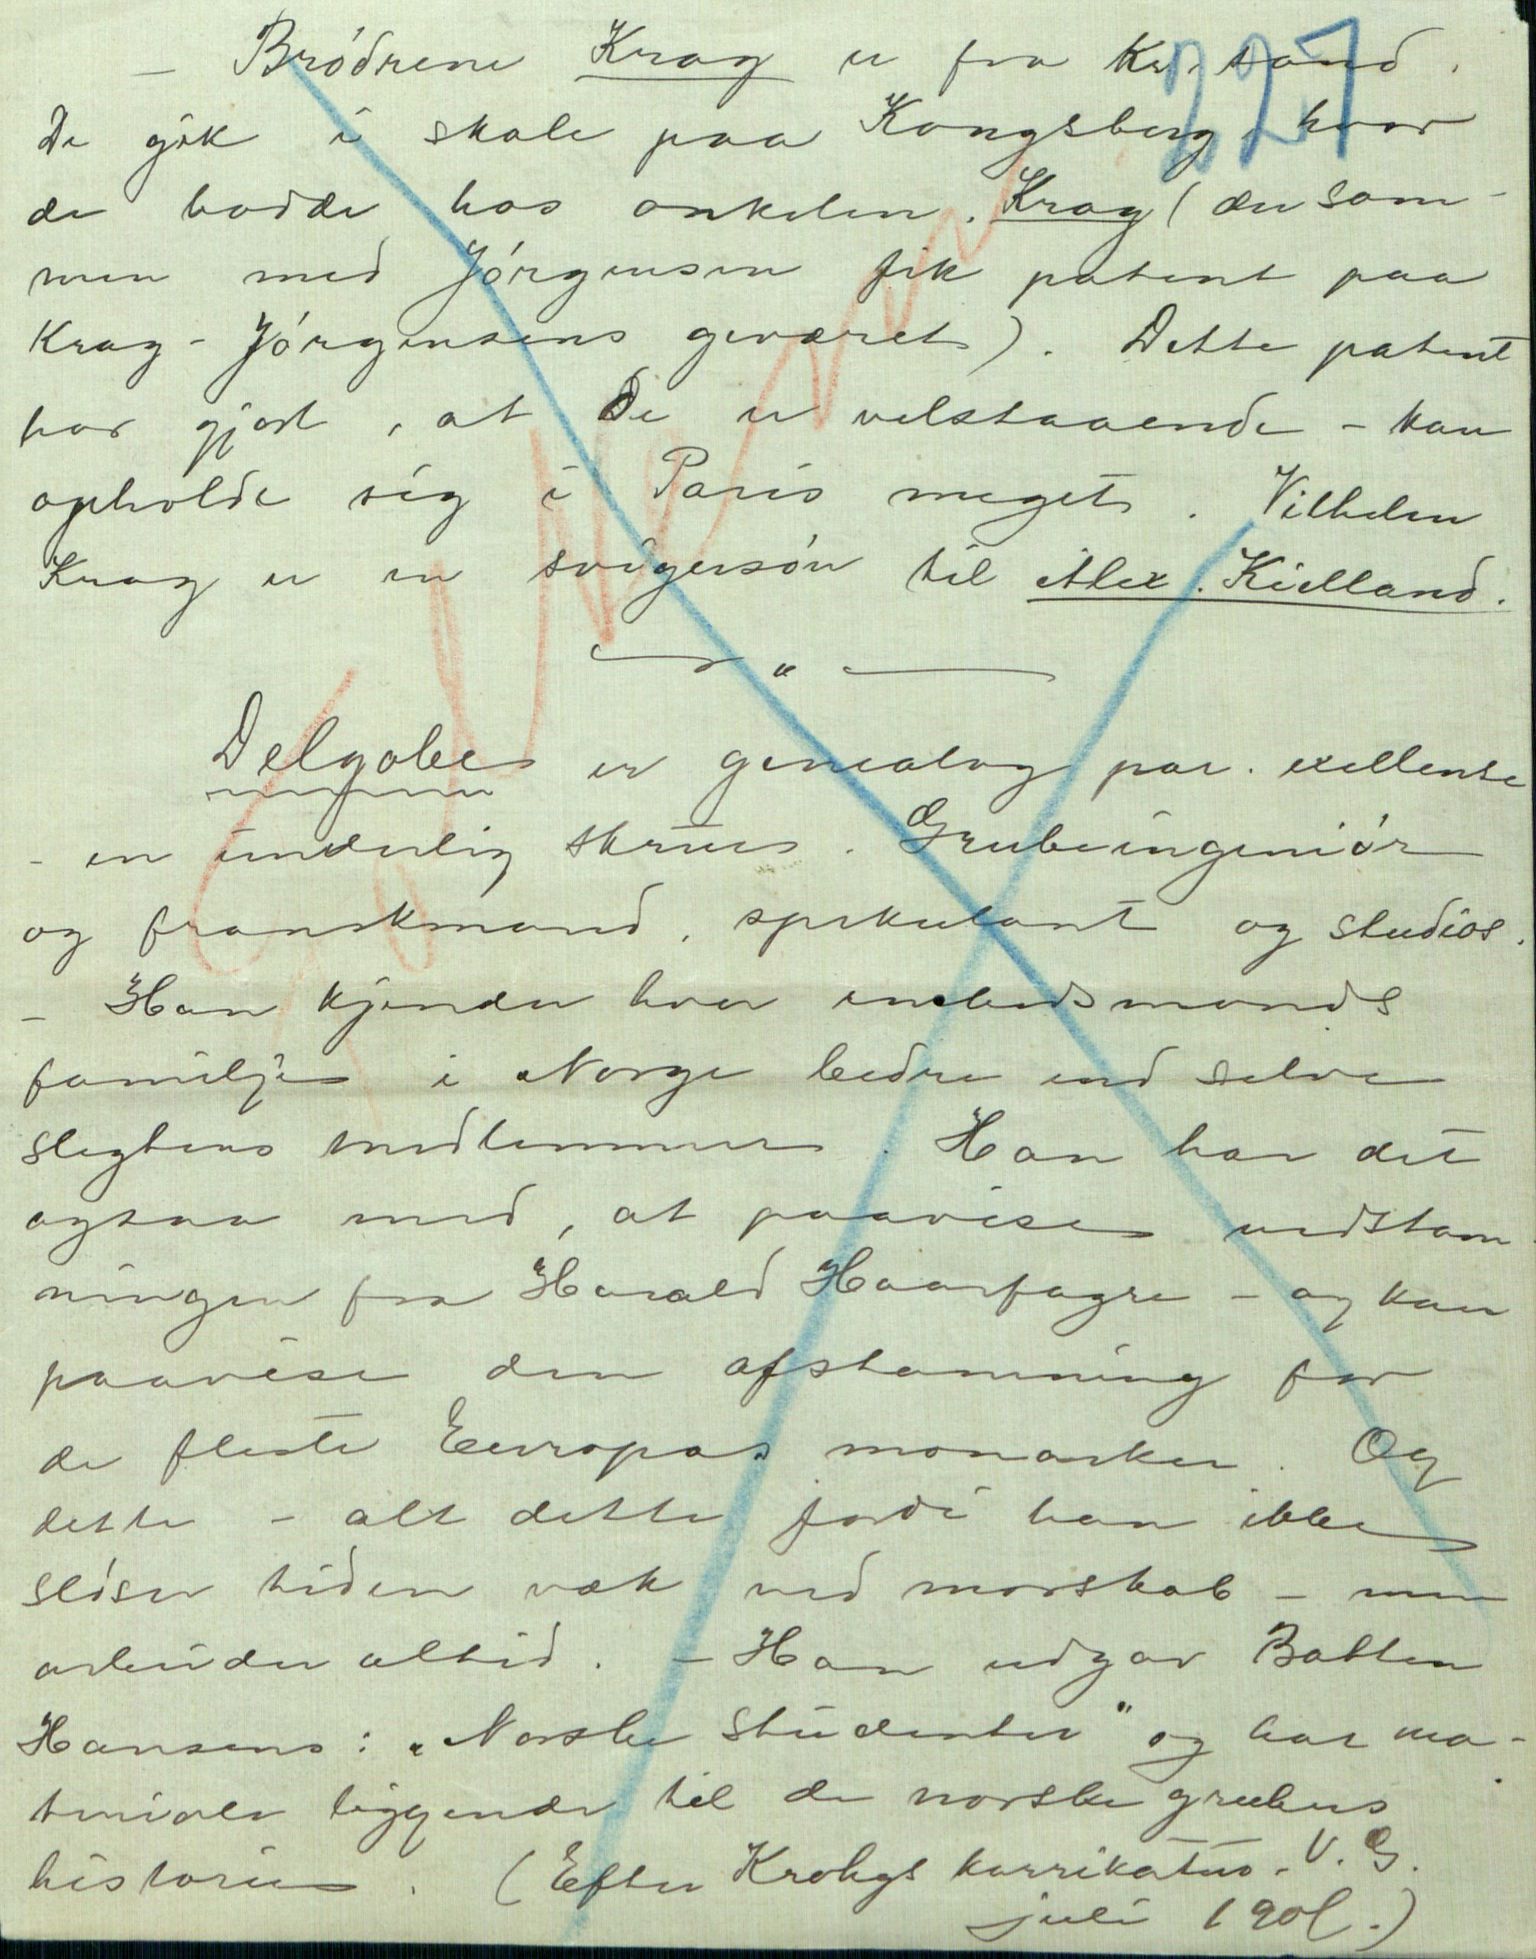 227
— Brödrene Krag er fra Kr. sand.
De gik i skole paa Kongsberg, hvor
de bodde hos onkelen. Krag (der sam-
men med Jörgensen fik patent paa
Krag-Jörgensens geværet). Dette patent
har gjort, at De er velstaaende - kan
opholde sig i Paris meget. Vilhelm
Krag er en svigersön til Alex. Kielland.
— „ —
Delgobe er genealog par. exellense
- en underlig skrue. Grubeingeniör
og franskmand, spekulant og studios.
- Han kjender hver embedsmands
familje i Norge bedre end selve
slegtens medlemmer. Han har det
ogsaa med, at paavise nedstam-
ningen fra Harald Haarfagre - og kan
paavise den afstamning for
de fleste Europas monarker. Og
dette - alt dette fordi han ikke
slöser tiden væk ved morskab - men
arbeider altid. - Han udgav Botten
Hansens: „Norske studenter" og har ma-
teriale liggende til de norske grubers
historie. (Efter Krohgs karrikatur. V. G.
juli 1901.)